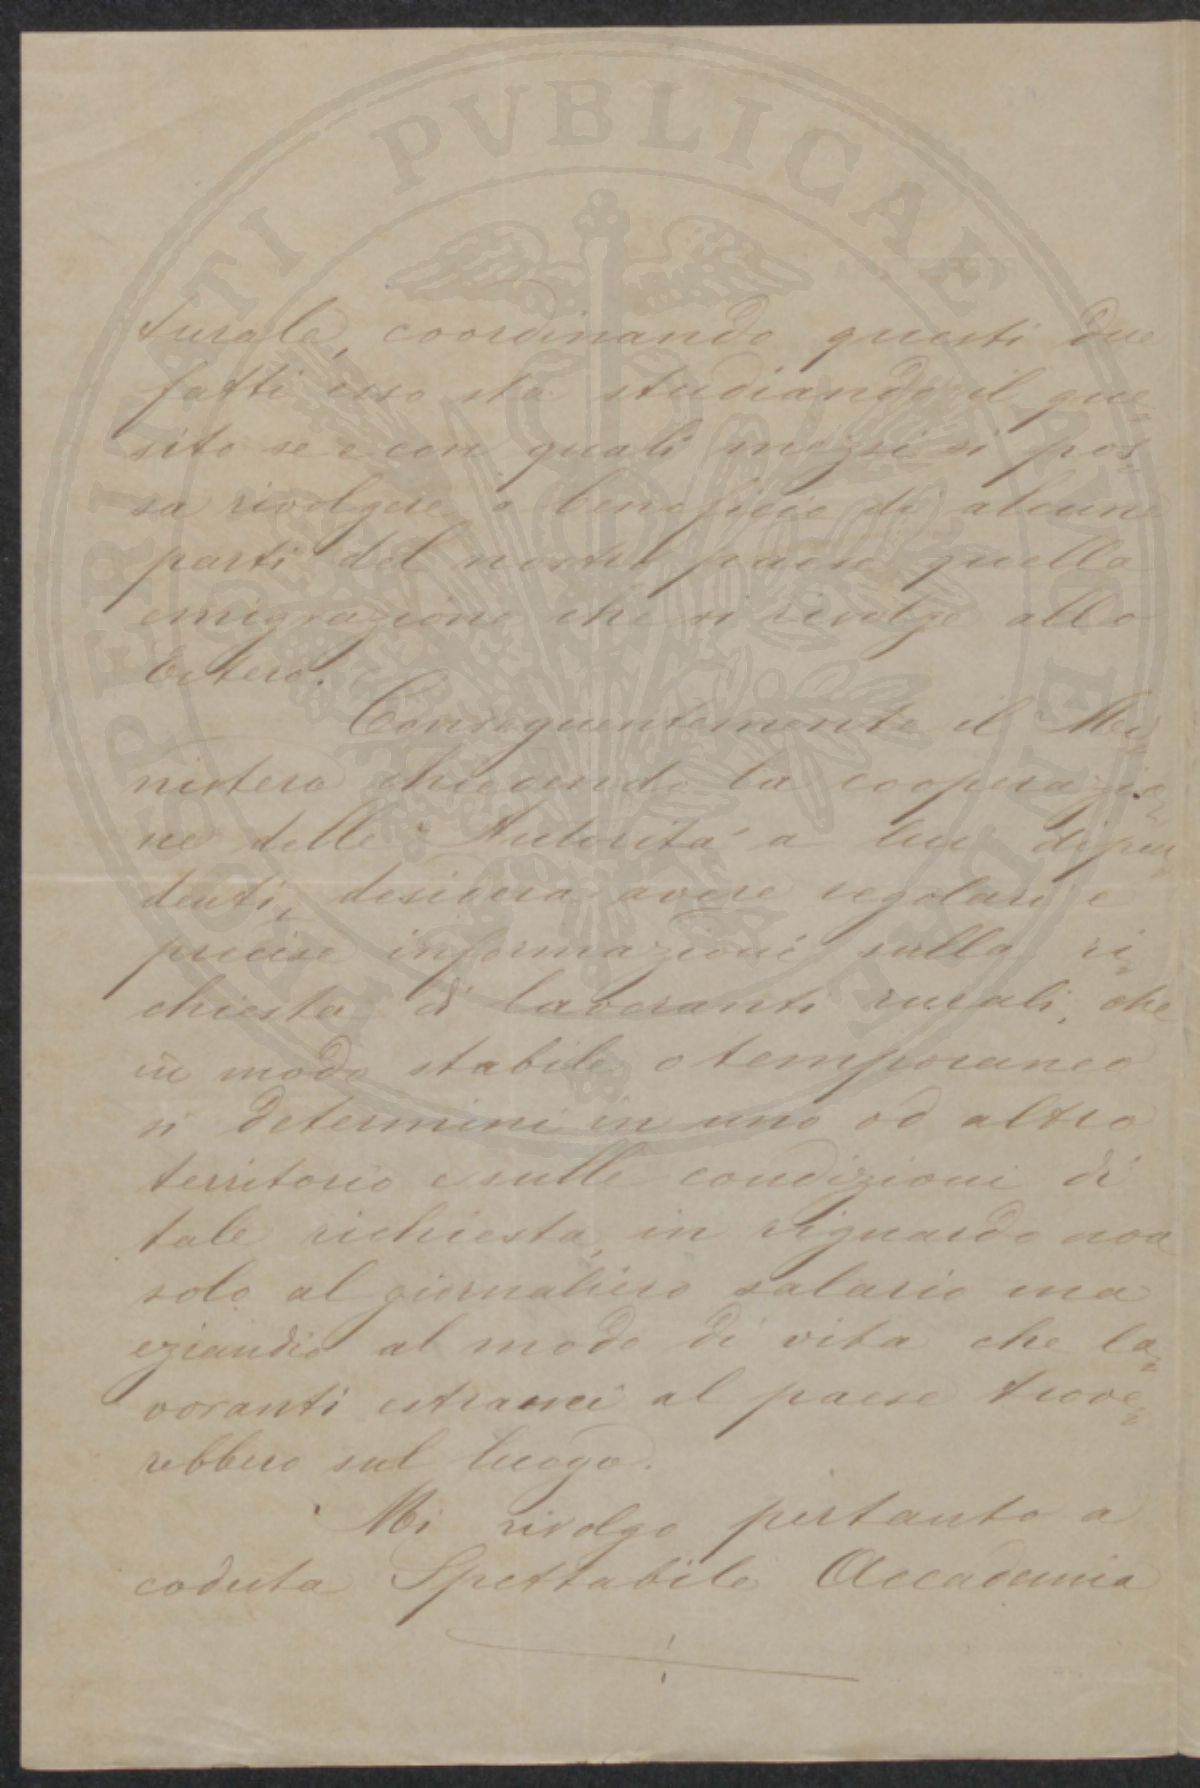 PROSPERITATI PVBLICAE AVGENDAE
turale, coordinando questi due
fatti esso sta studiando il que=
sito se e con quali mezzi si pos=
sa rivolgere a beneficio di alcune
parti del nostro paese quella
emigrazione che si rivolge allo
Estero.
Conseguentemente il Mi=
nistero chiedendo la cooperazio=
ne delle Autorità a lui dipen=
denti, desidera avere regolari e
precise informazioni sulla ri=
chiesta di lavoranti rurali, che
in modo stabile o temporaneo
si determini in uno od altro
territorio e sulle condizioni di
tale richiesta, in riguardo non
solo al giornaliero salario ma
eziandio al modo di vita che la=
voranti estranei al paese trove=
rebbero sul luogo.
Mi rivolgo pertanto a
codesta Spettabile Accademia